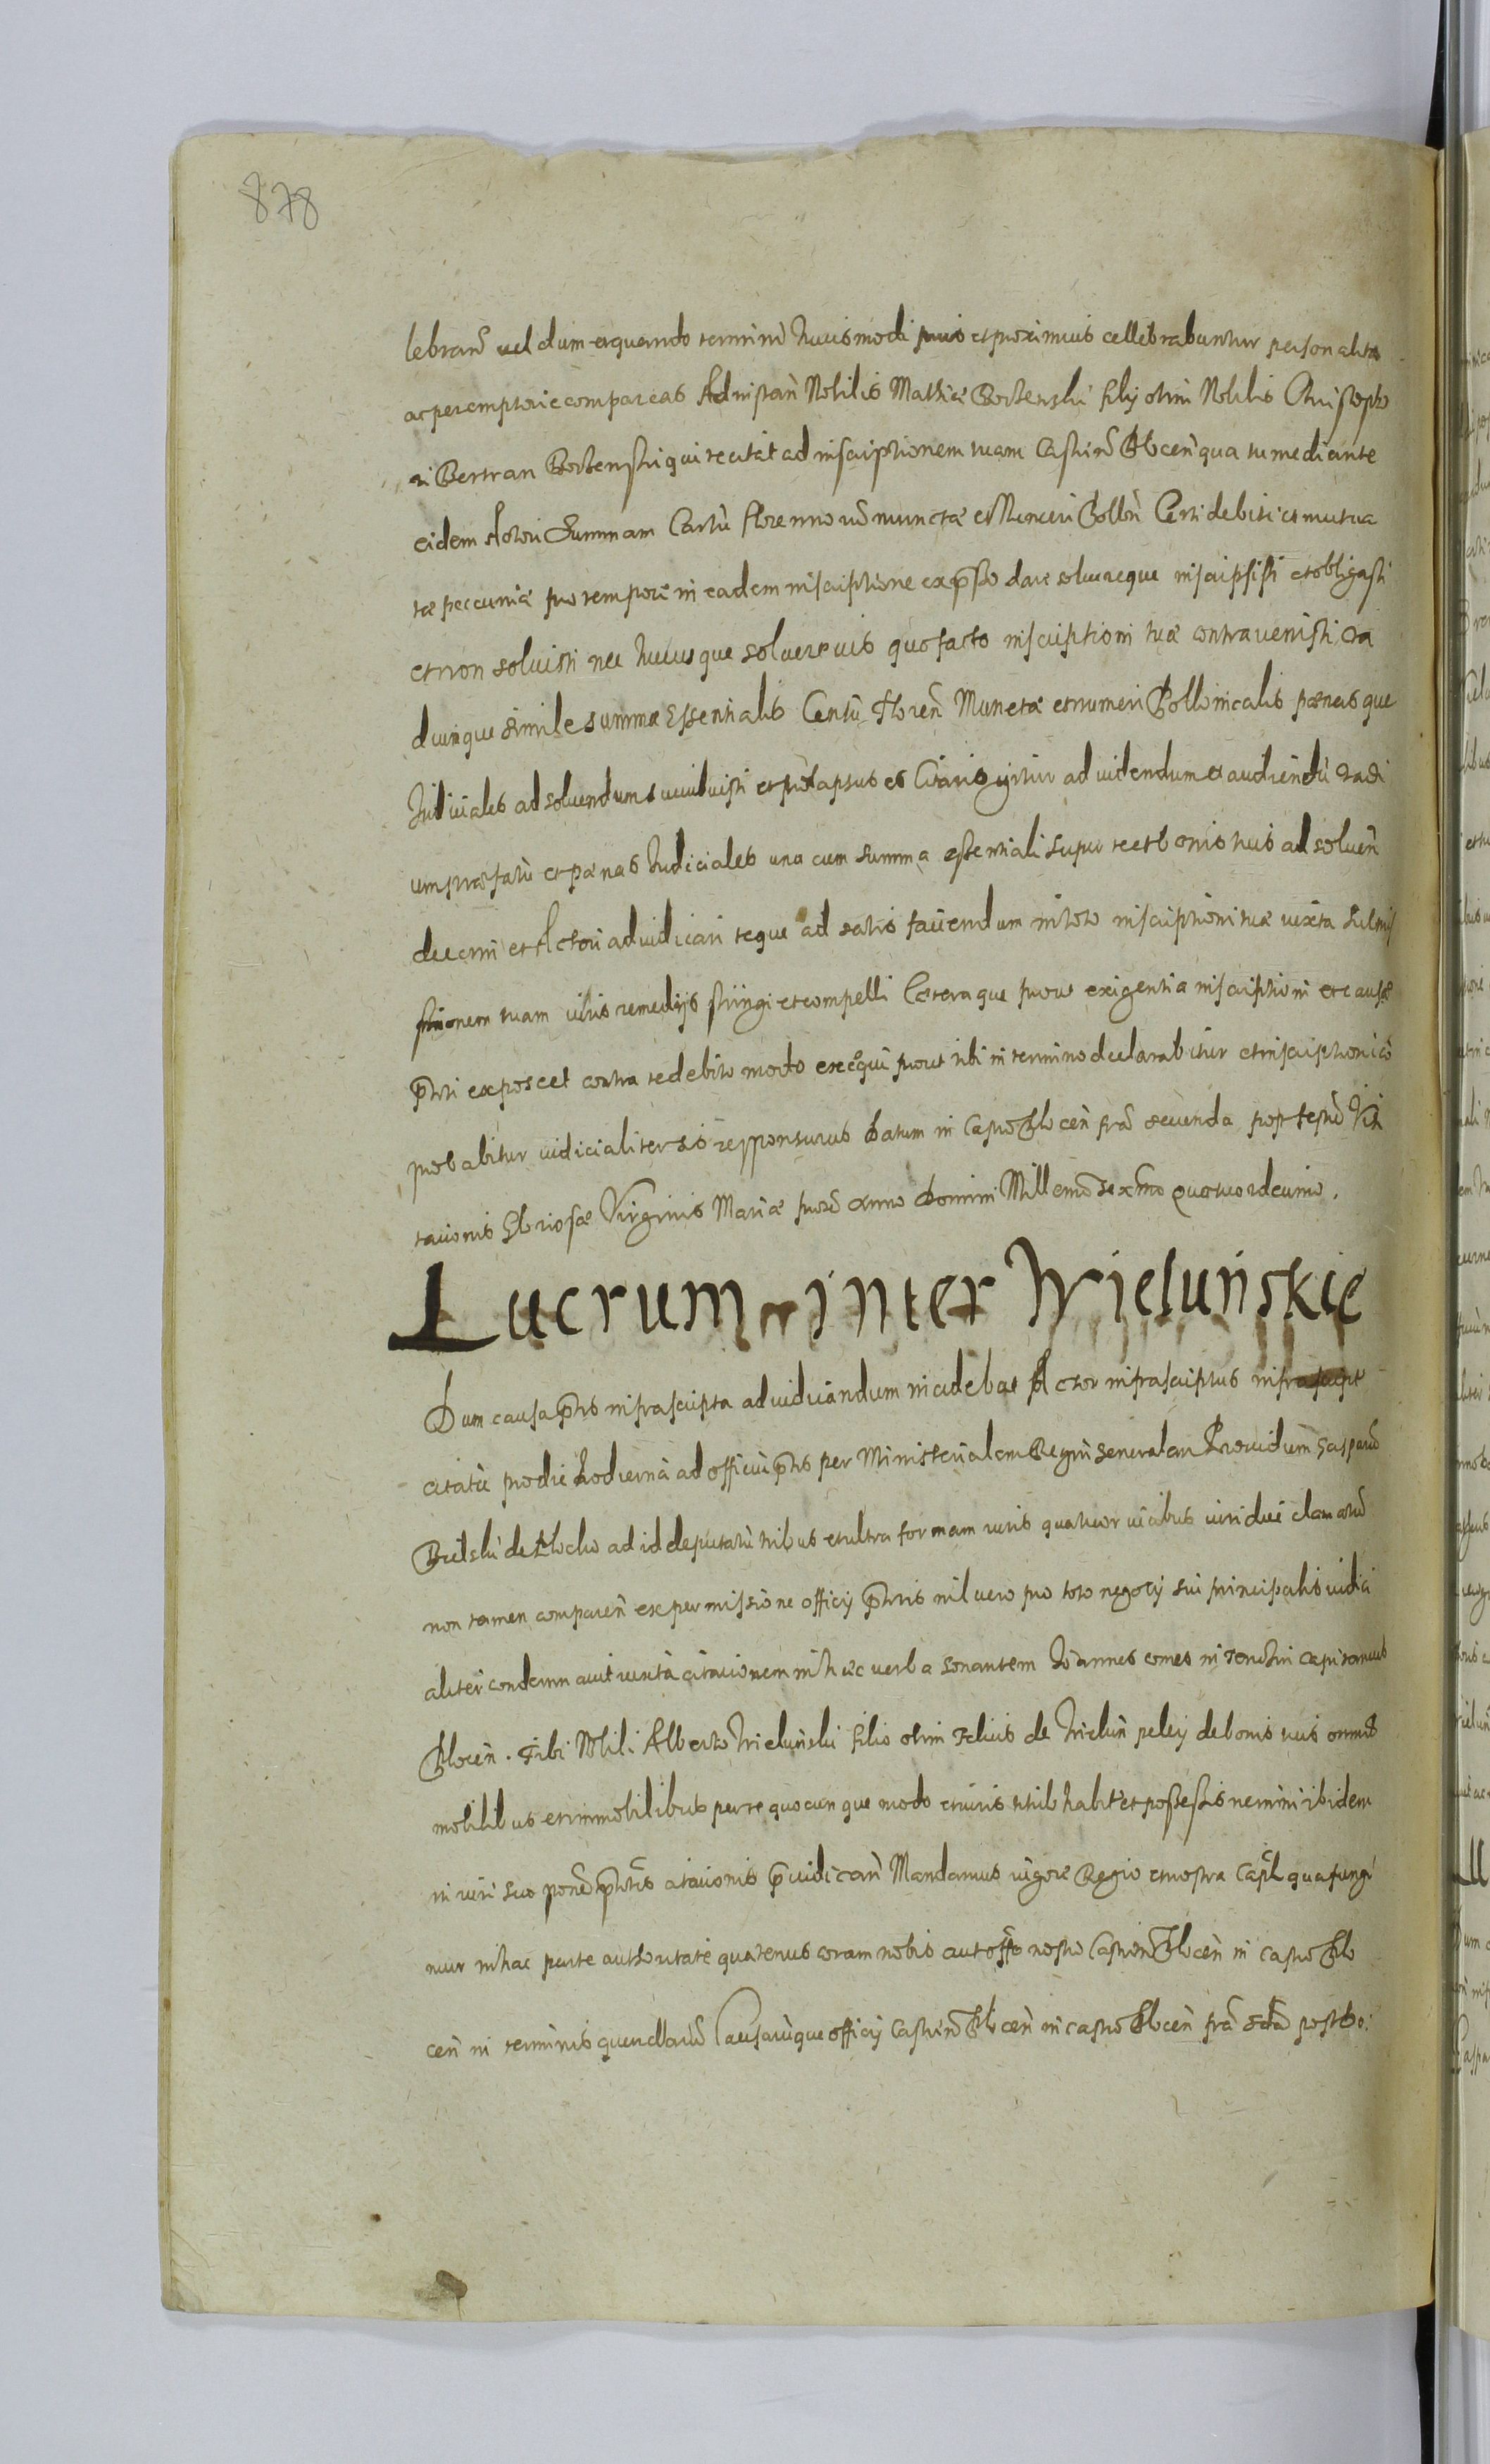 878
lebran vel dum et quando termini huiusmodi prius et proximius cellebrabuntur personaliter
ac peremptorie compareas Ad instan Nobilis Mathiæ Borzenski filij olim Nobilis Christopho
ri Bertran Borzenski qui te citat ad inscriptionem tuam Castren Plocen qua tu mediante
eidem Actori Summam Centu florenorum munetæ et Numeri Pollon Certi debiti et mutua
tæ peccuniæ pro tempore in eadem inscriptione expsso dare soluereque inscripsisti et obligasti
et non soluisti nec hucusque soluere vis quo facto inscriptioni tuæ contravenisti va
diumque simile summæ Essentialis Centu Floren Munetæ et numeri Pollonicalis pænasque
Iudiciales ad soluendum succubuisti et prolapsus es Citaris igitur ad videndum et audiendu vadi
um præfatu et pænas Iudiciales una cum summa essentiali super te et bonis tuis ad soluen
decerni et Actori adiudicari teque ad satis faciendum in toto inscriptioni tuæ iuxta submis
sionem tuam iuris remedijs stringi et compelli Cæteraque prout exigentia inscriptioni et causæ
pntri exposcet contra te debito modo exequi prout tibi in termino declarabitur et inscriptione co
probabitur iudicialiter sis responsurus Datum in Castro Plocen fria secunda post festu Visi
tationis Gloriosæ Virginis Mariæ prox Anno Domini Millemo sexmo quatuordecimo.
Lucrum inter Wieluńskie
Dum causa pntis infrascripta ad iudicandum incidebat Actor infrascriptus infrascript
citatu pro die hodierna ad officiu pntis per Ministerialem Regni Generalem Prouidum Gasparu
Bielski de Plocko ad id deputatu tribus et ultra formam iuris quatuor vicibus iuridice clamatu
non tamen comparen ex permissione officij pntis in lucro pro toto negotij sui principalis iudici
aliter condemnauit iuxta citationem in hæc verba sonantem Ioannes comes in Tenchin Capitaneus
Plocen. Tibi Nobili Alberto Wieluński filio olim Felicis de Wielun de bonis tuis omnibus
mobilibus et immobilibus per te quocunque modo et iuris titulo habit et possessis nemini ibidem
in iuri suo pntis citationis piudican Mandamus vigore Regio et nostra Capl qua fungi
mur in hac parte authoritate quatenus coram nobis aut offo nostro Castren Plocen in castro Plo
cen in terminis querellaru Causaruque officij Castren Plocen in castro Plocen fria scda post Do: